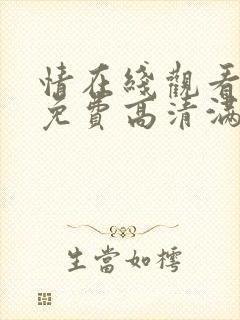 情在綫觀看
免費高清滿
生當如樗